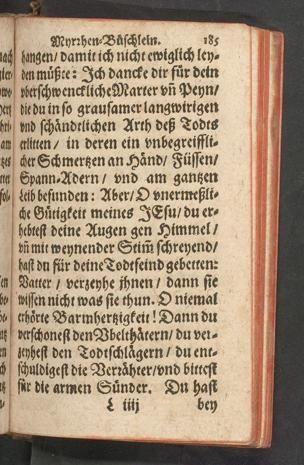 Myrrhen-Büschlein. 185
hangen/ damit ich nicht ewiglich ley-
den müßte: Ich dancke dir für dein
vberschwenckliche Marter vñ Peyn/
die du in so grausamer langwirigen
vnd schändlichen Arth deß Todts
erlitten/ in deren ein vnbegreiffli-
cher Schmertzen an Händ/ Füssen/
Spann-Adern/ vnd am gantzen
Leib befunden: Aber/ O vnermeßli-
che Gütigkeit meines JEsu/ du er-
hebtest deine Augen gen Himmel/
vñ mit weynender Stiṁ schreyend/
hast du für deine Todtfeind gebetten:
Vatter/ verzeyhe jhnen/ dann sie
wissen nicht was sie thun. O niemal
erhörte Barmhertzigkeit! Dann du
verschonest den Vbelthätern/ du ver-
zeyhest den Todtschlägern/ du ent-
schuldigest die Verräther/ vnd bittest
für die armen Sünder. Du hast
L iiij bey